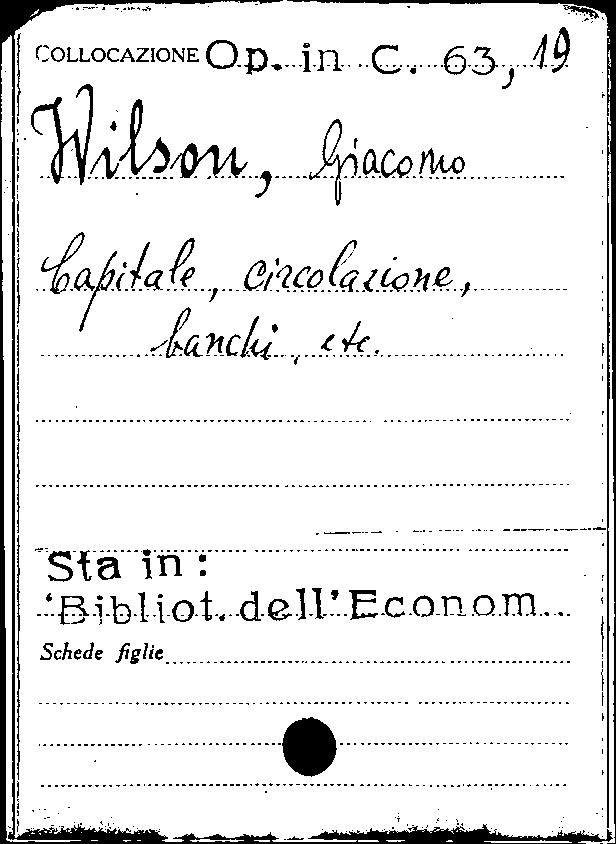 COLLOCAZIONE Op. in C. 63, 19
Wilson, Giacomo
Capitale, circolazione,
banchi, etc.
Sta in:
'Bibliot. dell'Econom..
Schede figlie